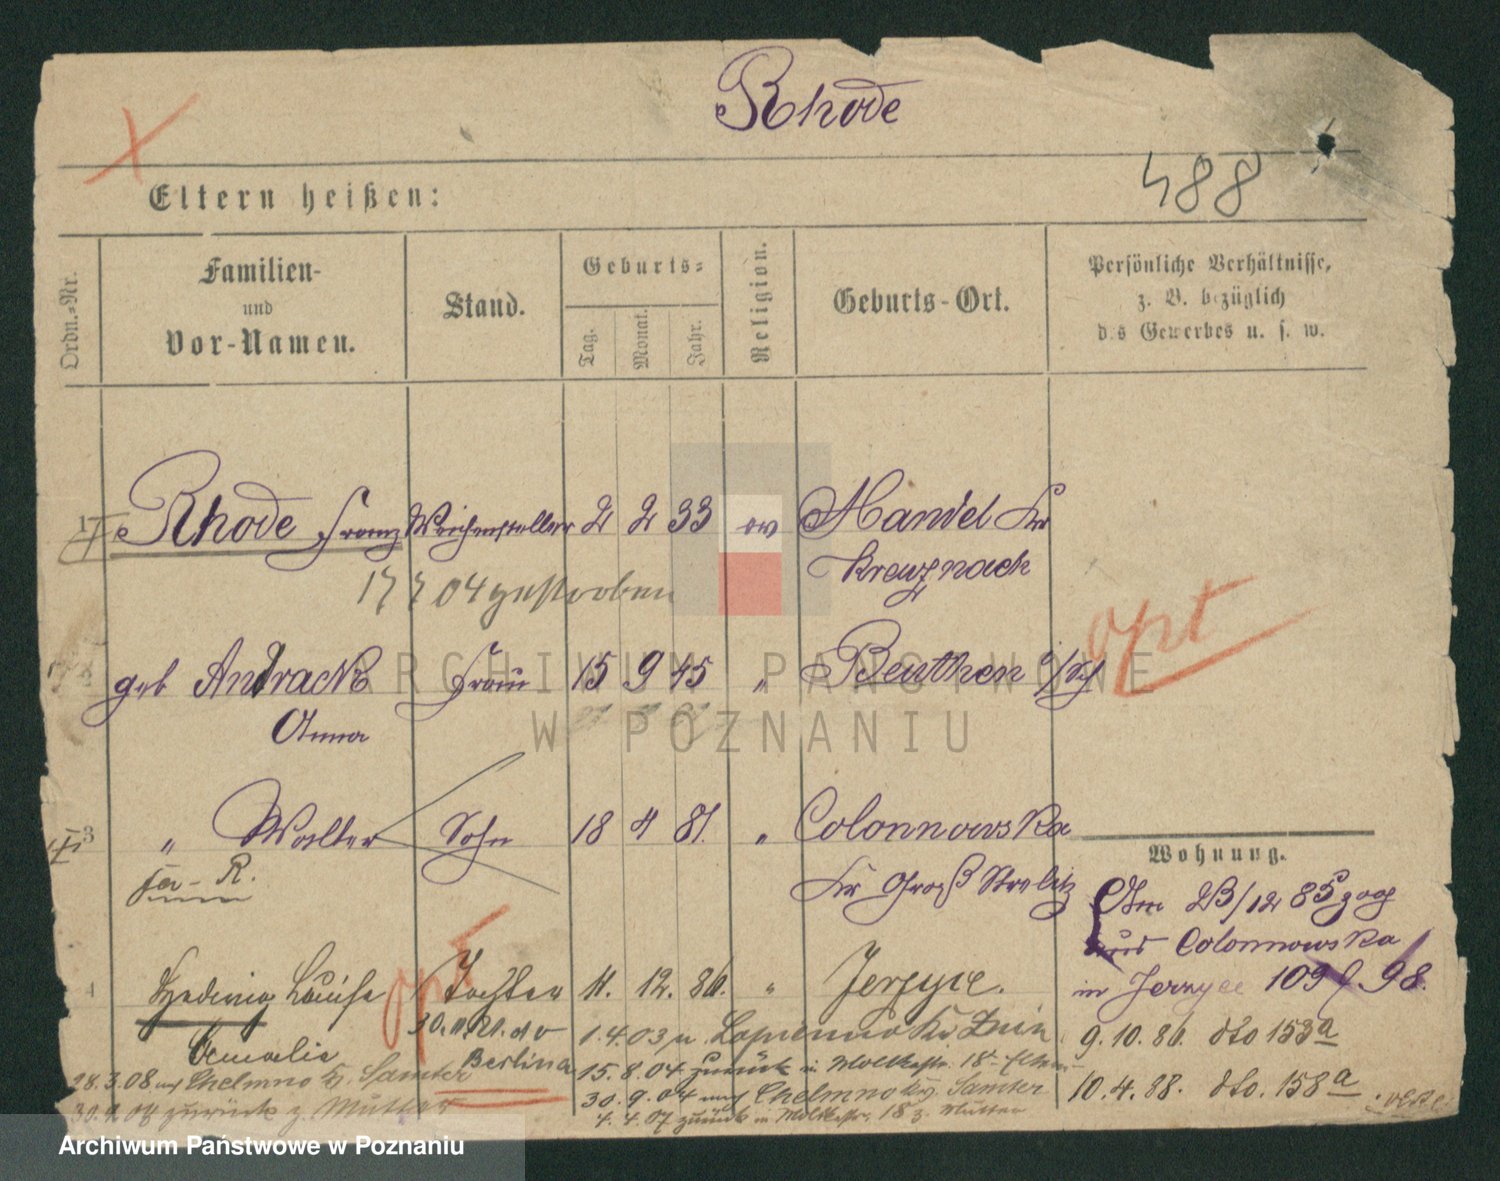 Rhode
488
Eltern heißen:
Ordn.-Nr.
Familien-
und
Vor-Namen.
Stand.
Geburts-
Tag.
Monat.
Jahr.
Religion.
Geburts-Ort.
Persönliche Verhältnisse,
z. B. bezüglich
des Gewerbes u. s. w.
1 Rhode Franz Weichensteller 2 2 33 ev Mandel Kr
Kreuznach
17 7 04 gestorben
opt
geb Andrack Frau 15 9 45 " Beuthen
Anna
3 " Walter Sohn 18 4 81. " Colonnowska
Kr Groß Strelitz
Wohnung.
Am 23/12 85 zog
aus Colonnowska
in Jerzyce 109 f. 98.
4 Hedwig Louise Tochter 11. 12. 86. " Jerzyce.
Amalie
opt
30.11.21.
Berlin
1.4.03 n. Lopienno Kr. Znin
9.10.86. dto 153a
15.8.04 zurück in Moltkestr. 18
10.4.88. dto. 158a
28.3.08 nach Chelmno Kr. Samter
30.9.04 nach Chelmno Kr. Samter
zurück z. Mutter
4.4.07 zurück in Moltkestr. 18 z. Mutter
ARCHIWUM PAŃSTWOWE
W POZNANIU
Archiwum Państwowe w Poznaniu